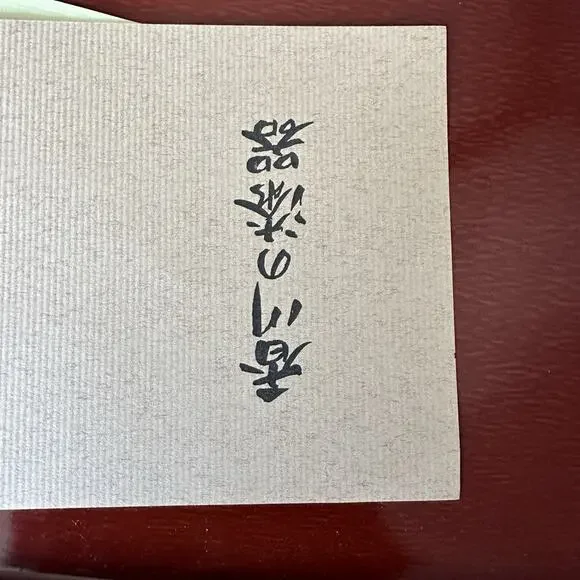 香川の漆器